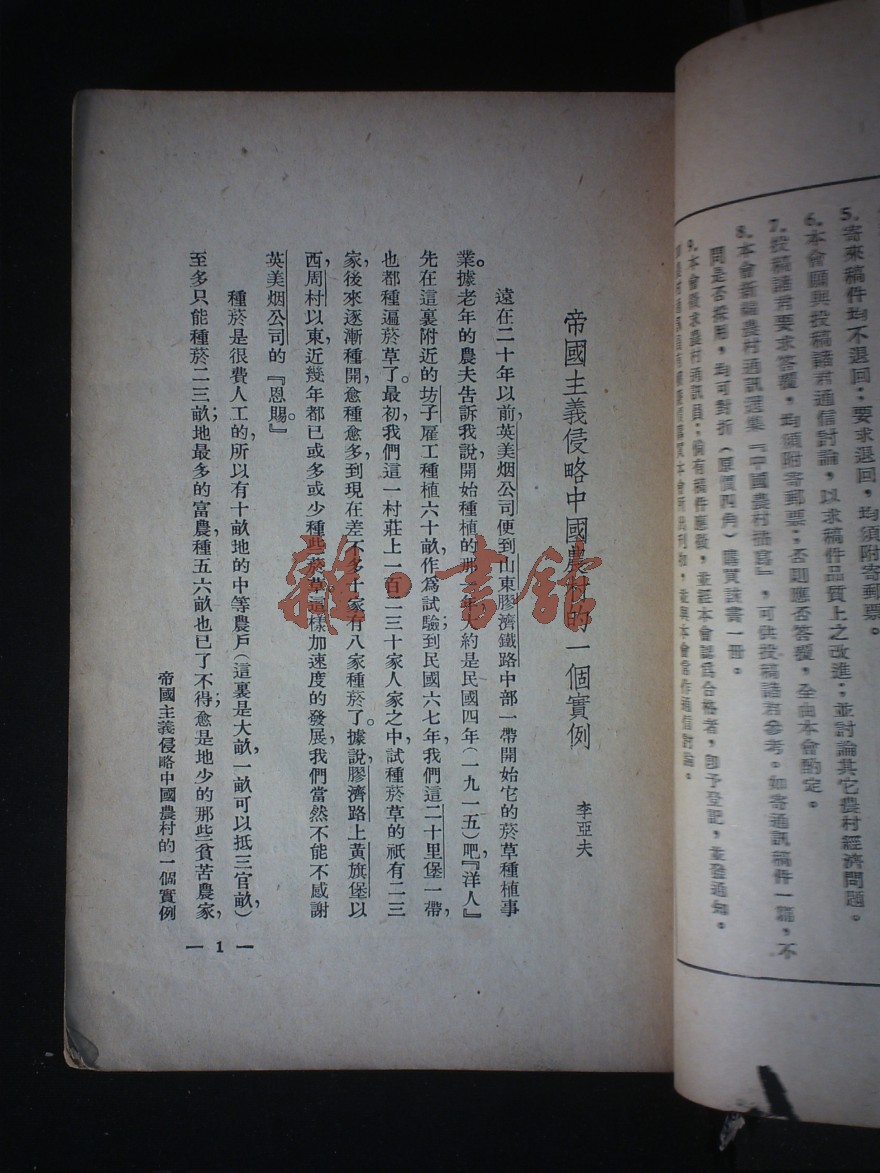 5.寄來稿件均不退回；要求退回，均須附寄郵票。
6.本會願與投稿諸君通信討論，以求稿件品質上之改進；並討論其它農村經濟問題。
7.投稿諸君要求答覆，均須附寄郵票；否則應否答覆，全由本會酌定。
8.本會新編農村通訊選集『中國農村描寫』，可供投稿諸君參考。如寄通訊稿件一篇，不
問是否採用，均可對折（原價四角）購買該書一冊。
9.本會徵求農村通訊員；備有稿件應徵，並經本會認為合格者，即予登記，並發通知。
帝國主義侵略中國農村的一個實例
李亞夫
遠在二十年以前，英美烟公司便到山東膠濟鐵路中部一帶開始它的菸草種植事
業。據老年的農夫告訴我說，開始種植的那一年，大約是民國四年（一九一五）吧，『洋人』
先在這裏附近的坊子雇工種植六十畝，作爲試驗；到民國六七年，我們這二十里堡一帶，
也都種遍菸草了。最初，我們這一村莊上一百二三十家人家之中，試種菸草的祇有二三
家，後來逐漸種開，愈種愈多，到現在差不多十家有八家種菸了。據說，膠濟路上黃旗堡以
西，周村以東，近幾年都已或多或少種些菸草。這樣加速度的發展，我們當然不能不感謝
英美烟公司的『恩賜』。
種菸是很費人工的，所以有十畝地的中等農戶（這裏是大畝，一畝可以抵三官畝，）
至多只能種菸二三畝；地最多的富農，種五六畝也已了不得；愈是地少的那些貧苦農家，
帝國主義侵略中國農村的一個實例
— 1 —
雜·書館